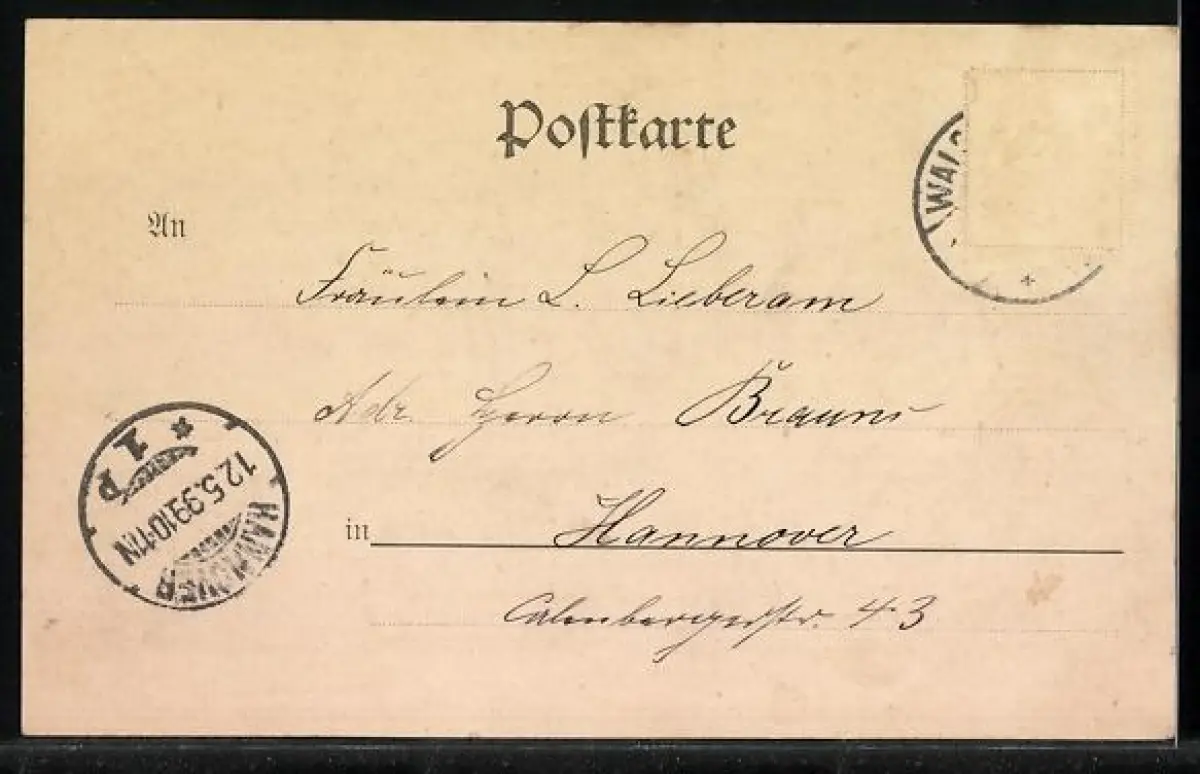 Postkarte
WAL
An
Fräulein L. Lieberam
Adr. Herrn Brauns
in Hannover
Calenbergerstr. 43
HANNOVER
12.5.99.10-11N
* 1 p